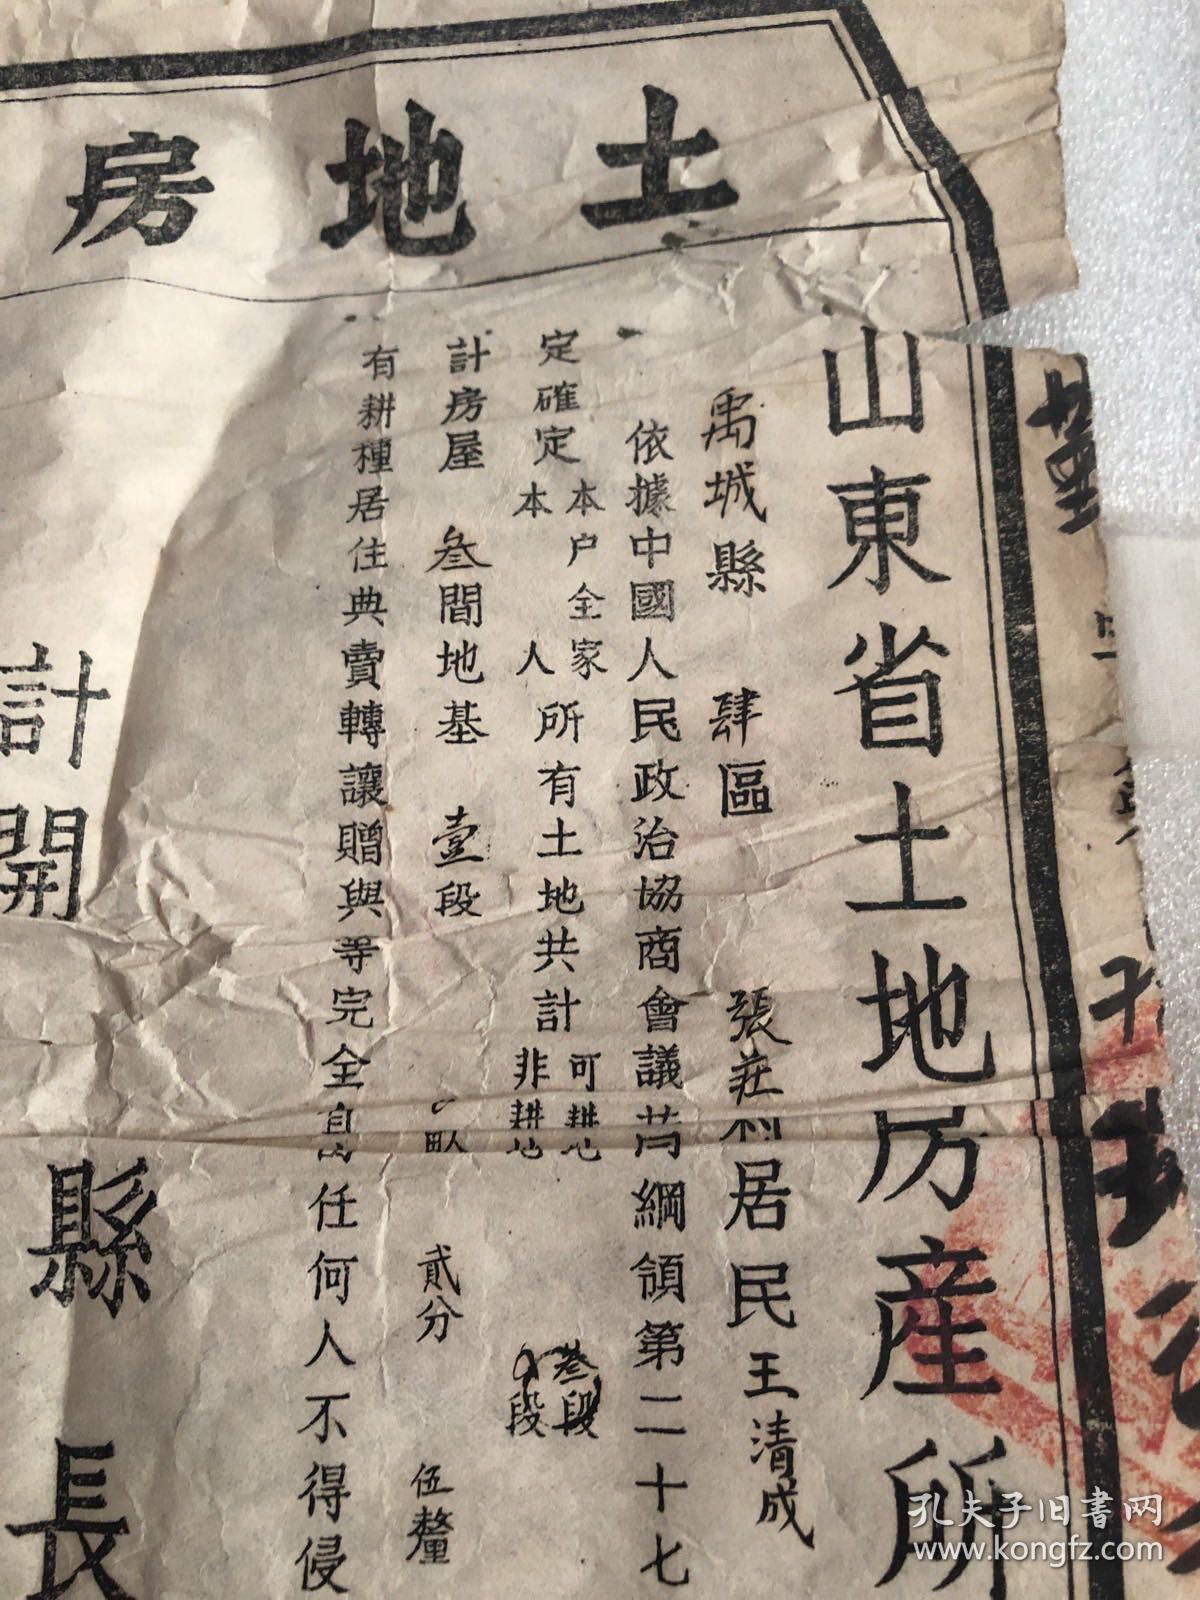 土地房
山東省土地房產所
禹城縣 肆區 張莊村居民王清成
依據中國人民政治協商會議共同綱領第二十七
定確定本戶全家
本人
所有土地共計
可耕地 叁段
非耕地 0段
計房屋 叁間地基 壹段 0畝 貳分 伍釐
有耕種居住典賣轉讓贈與等完全自由任何人不得侵
計開
縣長
孔夫子旧書网
www.kongfz.com